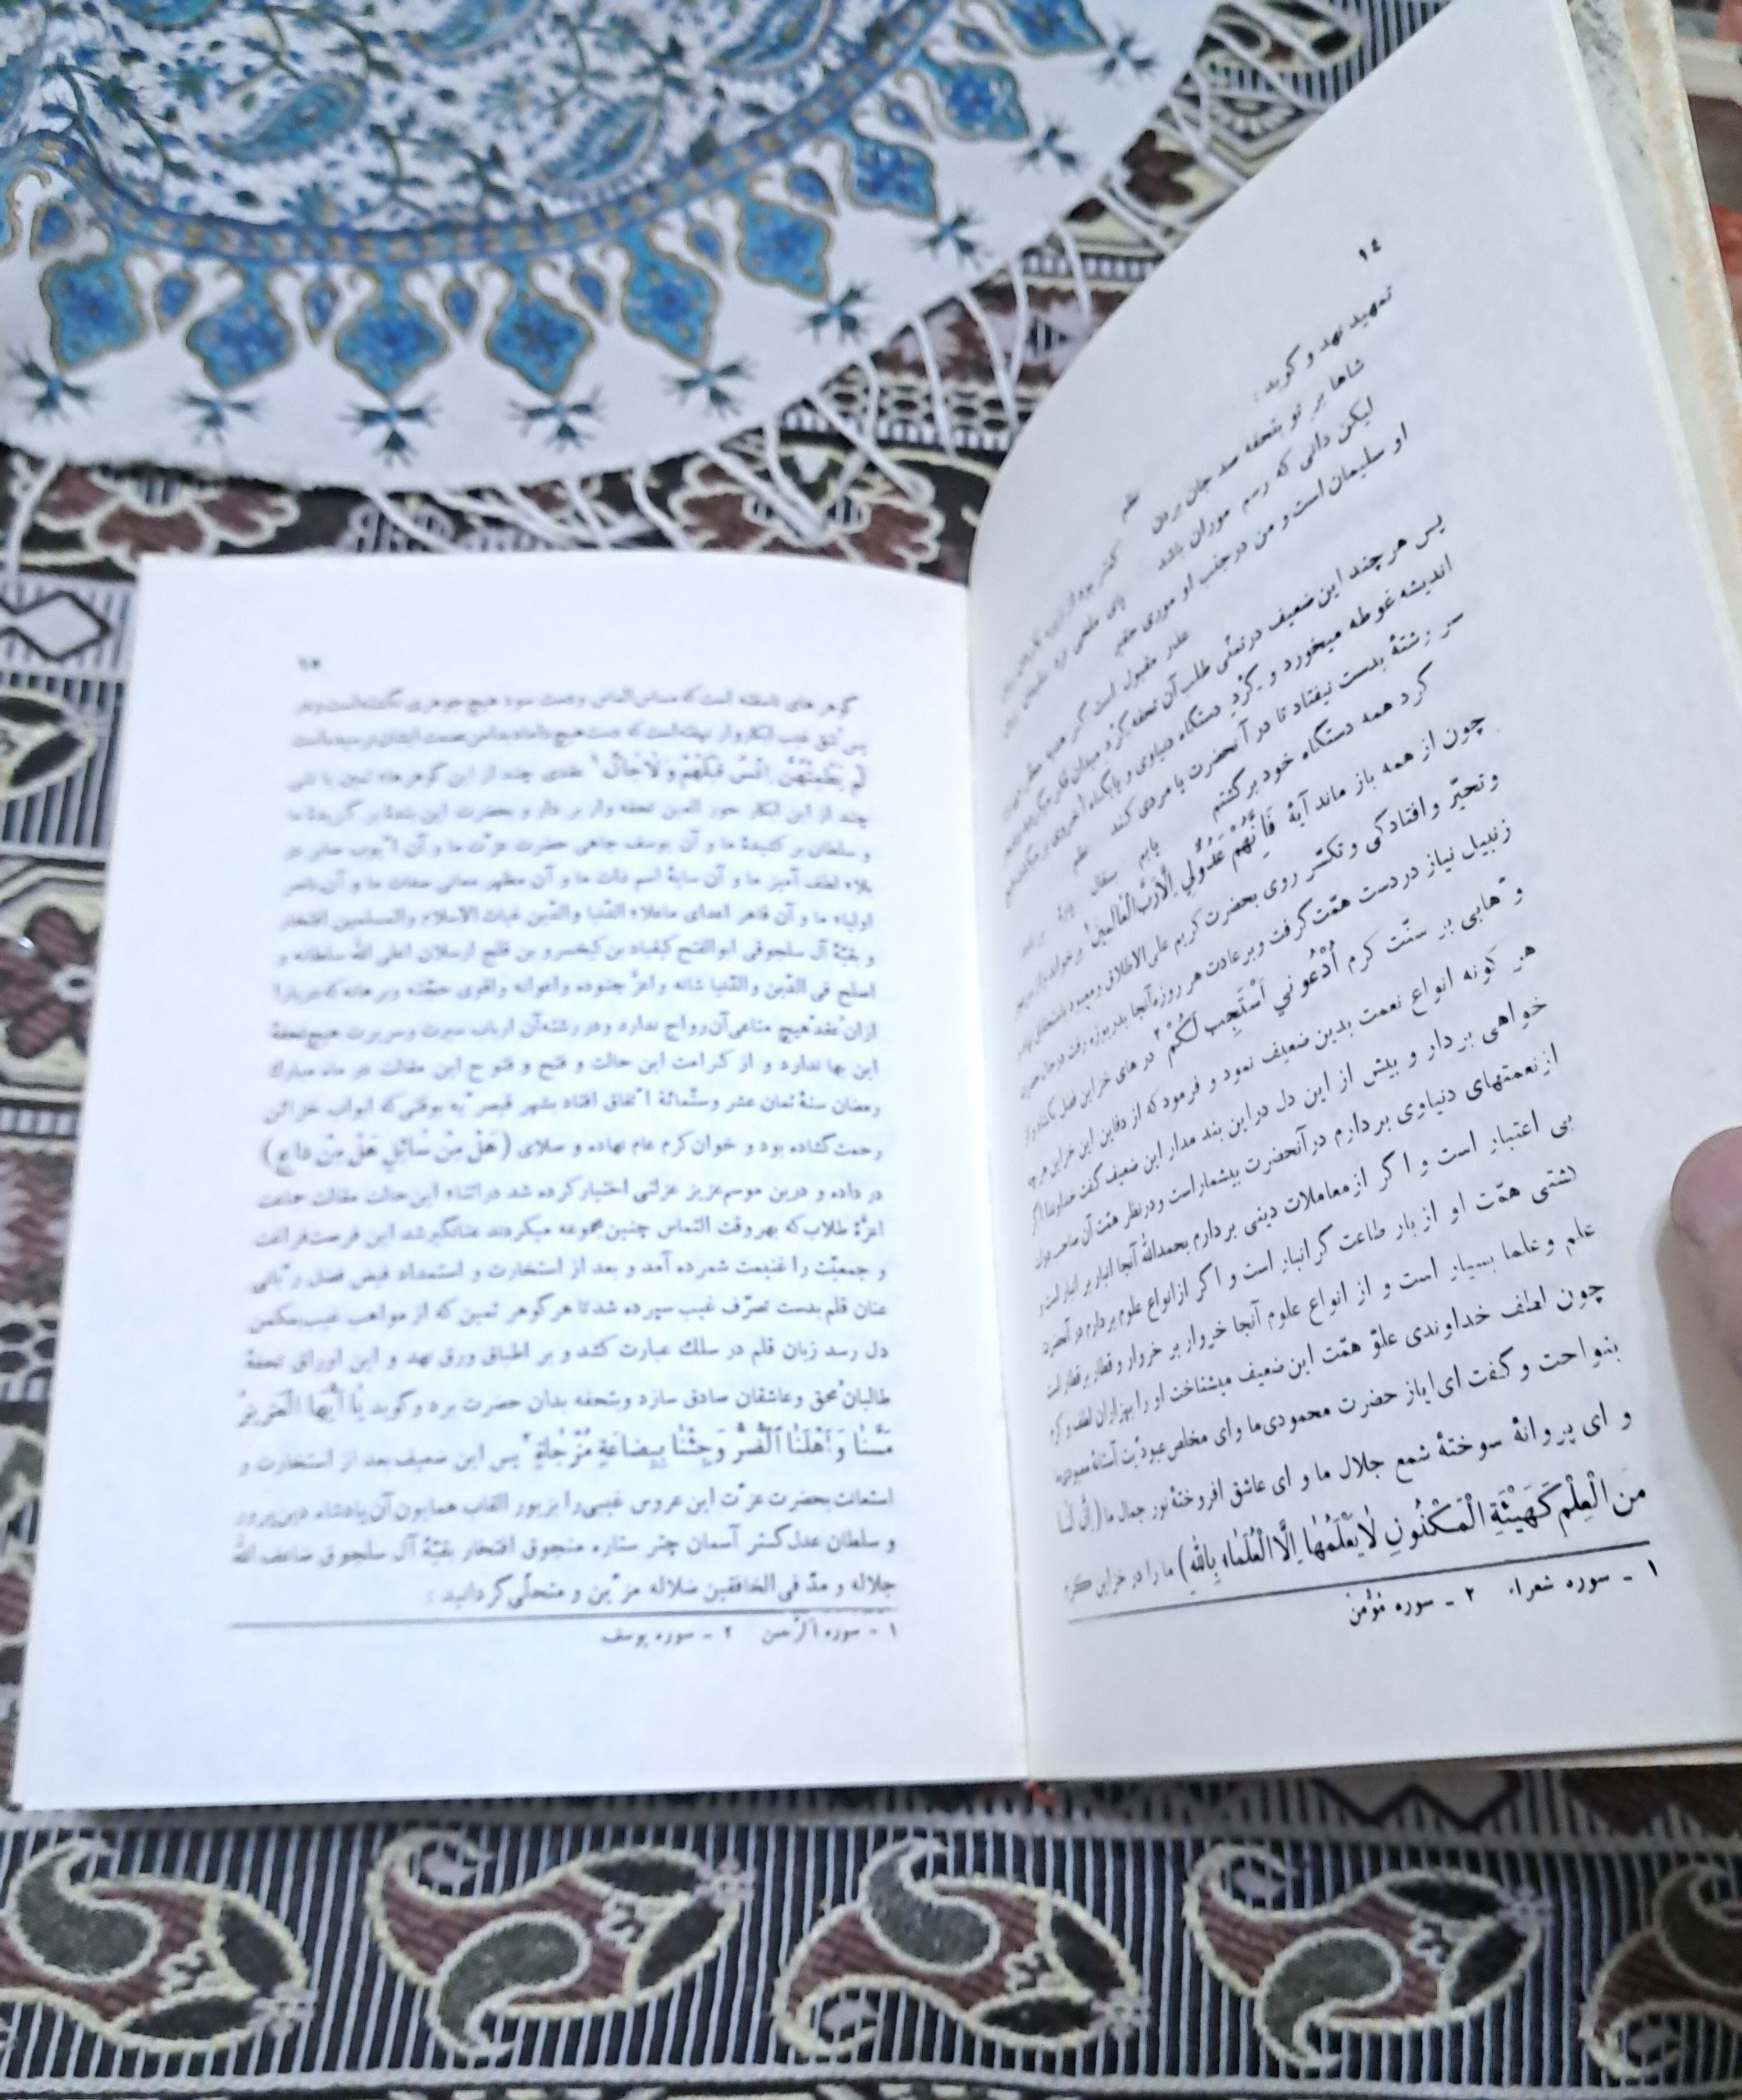 ١٤
تمهید نهد و گوید :
نظم
شاها بر تو بتحفه صد جان بردن
لیکن دانی که رسم موران باشد پای ملخی نزد سلیمان
او سلیمان است و من در جنب او موری حقیر عذر مقبول است گر
پس هر چند این ضعیف در تمنّی طلب آن تحفه گرد میدان فکر
اندیشه غوطه میخورد و گرد دستگاه دنیاوی و پایگاه آخروی
سر رشتهٔ بدست نیفتاد تا در آنحضرت پا مردی کند نظم
گرد همه دستگاه خود برگشتم پایم سفال پارهٔ
چون از همه باز ماند آیهٔ فَاِنَّهُمْ عَدُوٌّلي اِلّارَبَّ الْعٰالَمين١ برخواند و از سر
و تحیّر و افتادگی و تکسّر روی بحضرت کریم علی الاطلاق و معبود
زنبیل نیاز در دست همّت گرفت و بر عادت هر روزه آنجا بدریوزه رفت در حال حضرت
وهابی بر سنّت کرم اُدْعُوني اَسْتَجِب لَکُمْ٢ در های خزاین فضل بگشاد و از
هر گونه انواع نعمت بدین ضعیف نمود و فرمود که از دفاین این خزاین هر چه
خواهی بردار و بیش از این دل در این بند مدار این ضعیف گفت خداوندا اگر
از نعمتهای دنیاوی بردارم در آنحضرت بیشمار است و در نظر همّت آن صاحب دولت
بی اعتبار است و اگر از معاملات دینی بردارم بحمدالله آنجا انبار بر انبار است و
کشتی همّت او از بار طاعت گرانبار است و اگر از انواع علوم بردارم در آنحضرت
علم و علما بسیار است و از انواع علوم آنجا خروار بر خروار و قطار بر قطار است
چون لطف خداوندی علوّ همّت این ضعیف میشناخت او را بهزاران لطف و کرم
بنواخت و گفت ای ایاز حضرت محمودی ما و ای مخلص عبودیّت آستانهٔ معبودی ما
و ای پروانهٔ سوختهٔ شمع جلال ما و ای عاشق افروختهٔ نور جمال ما (اِنَّ
مَن الْعِلْم کَهَیْئَةِ الْمَکْنُونِ لٰا یَعْلَمُهٰا اِلَّا الْعُلَمٰاء بِاللهِ) ما را در خزاین کرم
١ ـ سوره شعراء ٢ ـ سوره مؤمن
١٥
گوهر های ناسفته است که مساس الماس و دست سود هیچ جوهری نگشته است و در
پس تتق غیب ابکار وار نهفته است که دست هیچ داماد بدامن عصمت ایشان نرسیده است
لَمْ يَطْمِثْهُنَّ اِنْسٌ قَبْلَهُمْ وَلٰا جٰانٌّ١ عقدی چند از این گوهرهاء ثمین با تنی
چند از این ابکار حور العین تحفه وار بر دار و بحضرت این بندهٔ بر گزیدهٔ ما
و سلطان بر کشیدهٔ ما و آن یوسف جاهی حضرت عزّت ما و آن ایّوب صابر در
بلاء لطف آمیز ما و آن سایهٔ اسم ذات ما و آن مظهر معانی صفات ما و آن ناصر
اولیاء ما و آن قاهر اعدای ماعلاء الدّنیا والدّین غیاث الاسلام والمسلمین افتخار
و بقیّهٔ آل سلجوقی ابوالفتح کیقباد بن کیخسرو بن قلج ارسلان اعلی الله سلطانه و
اصلح فی الدّین والدّنیا شانه و اعزّ جنوده واعوانه واقوی حجّته وبرهانه که دربارا
ازان عقد هیچ متاعی آن رواج ندارد و در رشته آن ارباب سیرت و سریرت هیچ تحفهٔ
این بها ندارد و از کرامت این حالت و فتح و فتوح این مقالت در ماه مبارک
رمضان سنهٔ ثمان عشر وستّمائة اتّفاق افتاد بشهر قیصریّه بوقتی که ابواب خزائن
رحمت گشاده بود و خوان کرم عام نهاده و صلای (هَلْ مِنْ سٰائِلٍ هَلْ مِنْ دٰاعٍ)
در داده و درین موسم عزیز عزلتی اختیار کرده شد در اثناء این حالت مقالت جماعت
اعزّهٔ طلاب که بهر وقت التماس چنین مجموعه میکردند عنانگیر شد این فرصت فراغت
و جمعیّت را غنیمت شمرده آمد و بعد از استخارت و استمداد فیض فضل ربّانی
عنان قلم بدست تصرّف غیب سپرده شد تا هر گوهر ثمین که از مواهب غیب بمکمن
دل رسد زبان قلم در سلك عبارت کشد و بر اطباق ورق نهد و این اوراق تحفهٔ
طالبان محق و عاشقان صادق سازد و بتحفه بدان حضرت برد و گوید یٰا اَیُّها الْعَزیزُ
مَسَّنٰا وَ اَهْلَنَا الضُّرُّ وَ جِئْنٰا بِبِضٰاعَةٍ مُزْجٰاةٍ٢ پس این ضعیف بعد از استخارت و
استعانت بحضرت عزّت این عروس غیبی را بزیور القاب همایون آن پادشاه دین پرور
و سلطان عدل گستر آسمان چتر ستاره منجوق افتخار بقیّهٔ آل سلجوق ضاعف الله
جلاله و مدّ فی الخافقین ضلاله مزیّن و متحلّی گردانید :
١ - سوره الرّحمن ٢ - سوره یوسف